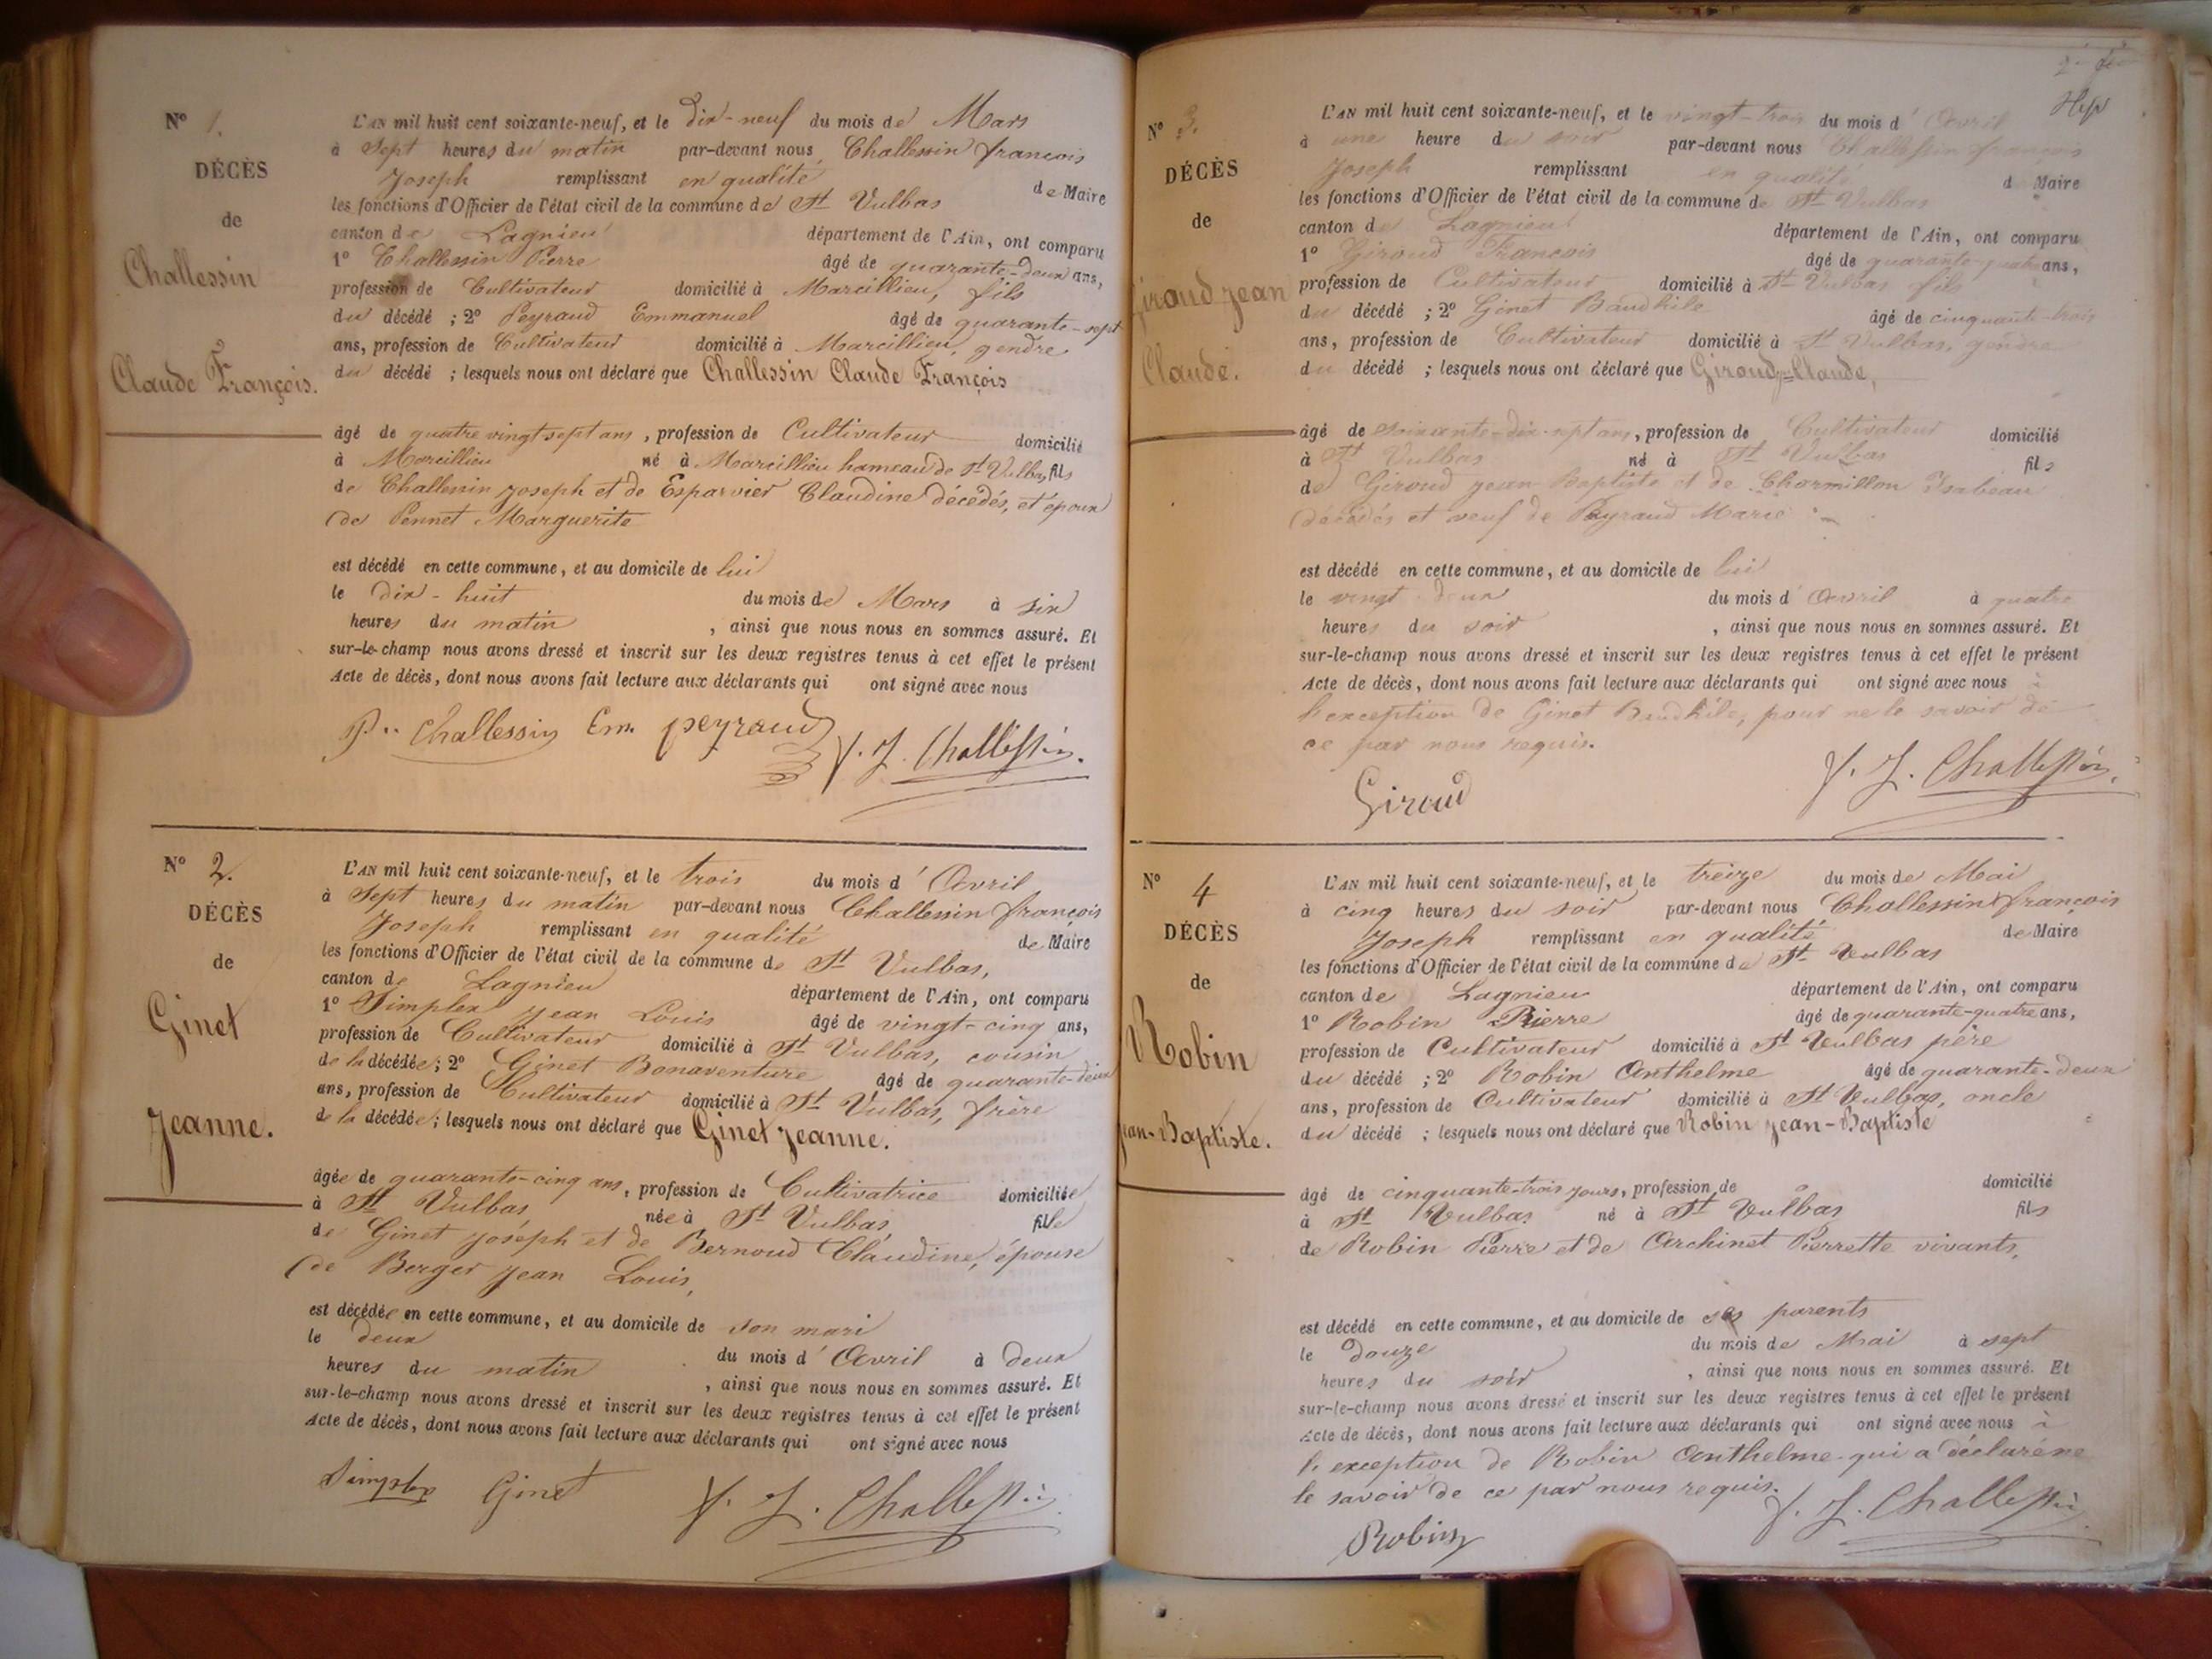 N° 1.
DÉCÈS
de
Challessin
Claude François.
L'AN mil huit cent soixante-neuf, et le dix-neuf du mois de Mars
à Sept heures du matin par-devant nous Challessin françois
Joseph remplissant en qualité de Maire
les fonctions d'Officier de l'état civil de la commune de St Vulbas
canton de Lagnieu département de l'Ain, ont comparu
1° Challessin Pierre âgé de quarante-deux ans,
profession de Cultivateur domicilié à Marcillieu, fils
du décédé ; 2° Peyraud Emmanuel âgé de quarante-sept
ans, profession de Cultivateur domicilié à Marcillieu, gendre
du décédé ; lesquels nous ont déclaré que Challessin Claude François
âgé de quatre vingt sept ans, profession de Cultivateur domicilié
à Marcillieu né à Marcillieu hameau de St Vulbas, fils
de Challessin Joseph et de Esparvier Claudine décédés, et époux
de Pennet Marguerite
est décédé en cette commune, et au domicile de lui
le dix-huit du mois de Mars à six
heures du matin, ainsi que nous nous en sommes assuré. Et
sur-le-champ nous avons dressé et inscrit sur les deux registres tenus à cet effet le présent
Acte de décès, dont nous avons fait lecture aux déclarants qui ont signé avec nous
P.. Challessin Em. peyraud
f. J. Challessin.
N° 2.
DÉCÈS
de
Ginet
Jeanne.
L'AN mil huit cent soixante-neuf, et le trois du mois d'Avril
à Sept heures du matin par-devant nous Challessin françois
Joseph remplissant en qualité de Maire
les fonctions d'Officier de l'état civil de la commune de St Vulbas,
canton de Lagnieu département de l'Ain, ont comparu
1° Simplex Jean Louis âgé de vingt-cinq ans,
profession de Cultivateur domicilié à St Vulbas, cousin
de la décédée ; 2° Ginet Bonaventure âgé de quarante-deux
ans, profession de Cultivateur domicilié à St Vulbas, frère
de la décédée ; lesquels nous ont déclaré que Ginet Jeanne.
âgée de quarante-cinq ans, profession de Cultivatrice domiciliée
à St Vulbas née à St Vulbas fille
de Ginet Joseph et de Bernoud Claudine, épouse
de Berger Jean Louis,
est décédée en cette commune, et au domicile de son mari
le deux du mois d'Avril à deux
heures du matin, ainsi que nous nous en sommes assuré. Et
sur-le-champ nous avons dressé et inscrit sur les deux registres tenus à cet effet le présent
Acte de décès, dont nous avons fait lecture aux déclarants qui ont signé avec nous
Simplex Ginet f. J. Challessin
N° 3.
DÉCÈS
de
Giroud Jean
Claude.
L'AN mil huit cent soixante-neuf, et le vingt-trois du mois d'Avril
à une heure du soir par-devant nous Challessin françois
Joseph remplissant en qualité de Maire
les fonctions d'Officier de l'état civil de la commune de St Vulbas
canton de Lagnieu département de l'Ain, ont comparu
1° Giroud François âgé de quarante-quatre ans,
profession de Cultivateur domicilié à St Vulbas fils
du décédé ; 2° Ginet Baudhile âgé de cinquante-trois
ans, profession de Cultivateur domicilié à St Vulbas, gendre
du décédé ; lesquels nous ont déclaré que Giroud Claude,
âgé de soixante-dix-sept ans, profession de Cultivateur domicilié
à St Vulbas né à St Vulbas fils
de Giroud Jean Baptiste et de Chormillon Isabeau
décédés et veuf de Peyraud Marie
est décédé en cette commune, et au domicile de lui
le vingt-deux du mois d'Avril à quatre
heures du soir, ainsi que nous nous en sommes assuré. Et
sur-le-champ nous avons dressé et inscrit sur les deux registres tenus à cet effet le présent
Acte de décès, dont nous avons fait lecture aux déclarants qui ont signé avec nous à
l'exception de Ginet Baudhile, pour ne le savoir de
ce par nous requis.
Giroud
f. J. Challessin.
N° 4
DÉCÈS
de
Robin
Jean-Baptiste.
L'AN mil huit cent soixante-neuf, et le treize du mois de Mai
à cinq heures du soir par-devant nous Challessin françois
Joseph remplissant en qualité de Maire
les fonctions d'Officier de l'état civil de la commune de St Vulbas
canton de Lagnieu département de l'Ain, ont comparu
1° Robin Pierre âgé de quarante-quatre ans,
profession de Cultivateur domicilié à St Vulbas père
du décédé ; 2° Robin Anthelme âgé de quarante-deux
ans, profession de Cultivateur domicilié à St Vulbas, oncle
du décédé ; lesquels nous ont déclaré que Robin Jean-Baptiste
âgé de cinquante-trois jours, profession de domicilié
à St Vulbas né à St Vulbas fils
de Robin Pierre et de Archinet Pierrette vivants,
est décédé en cette commune, et au domicile de ses parents
le douze du mois de Mai à sept
heures du soir, ainsi que nous nous en sommes assuré. Et
sur-le-champ nous avons dressé et inscrit sur les deux registres tenus à cet effet le présent
Acte de décès, dont nous avons fait lecture aux déclarants qui ont signé avec nous à
l'exception de Robin Anthelme qui a déclaré ne
le savoir de ce par nous requis.
Robin
f. J. Challessin